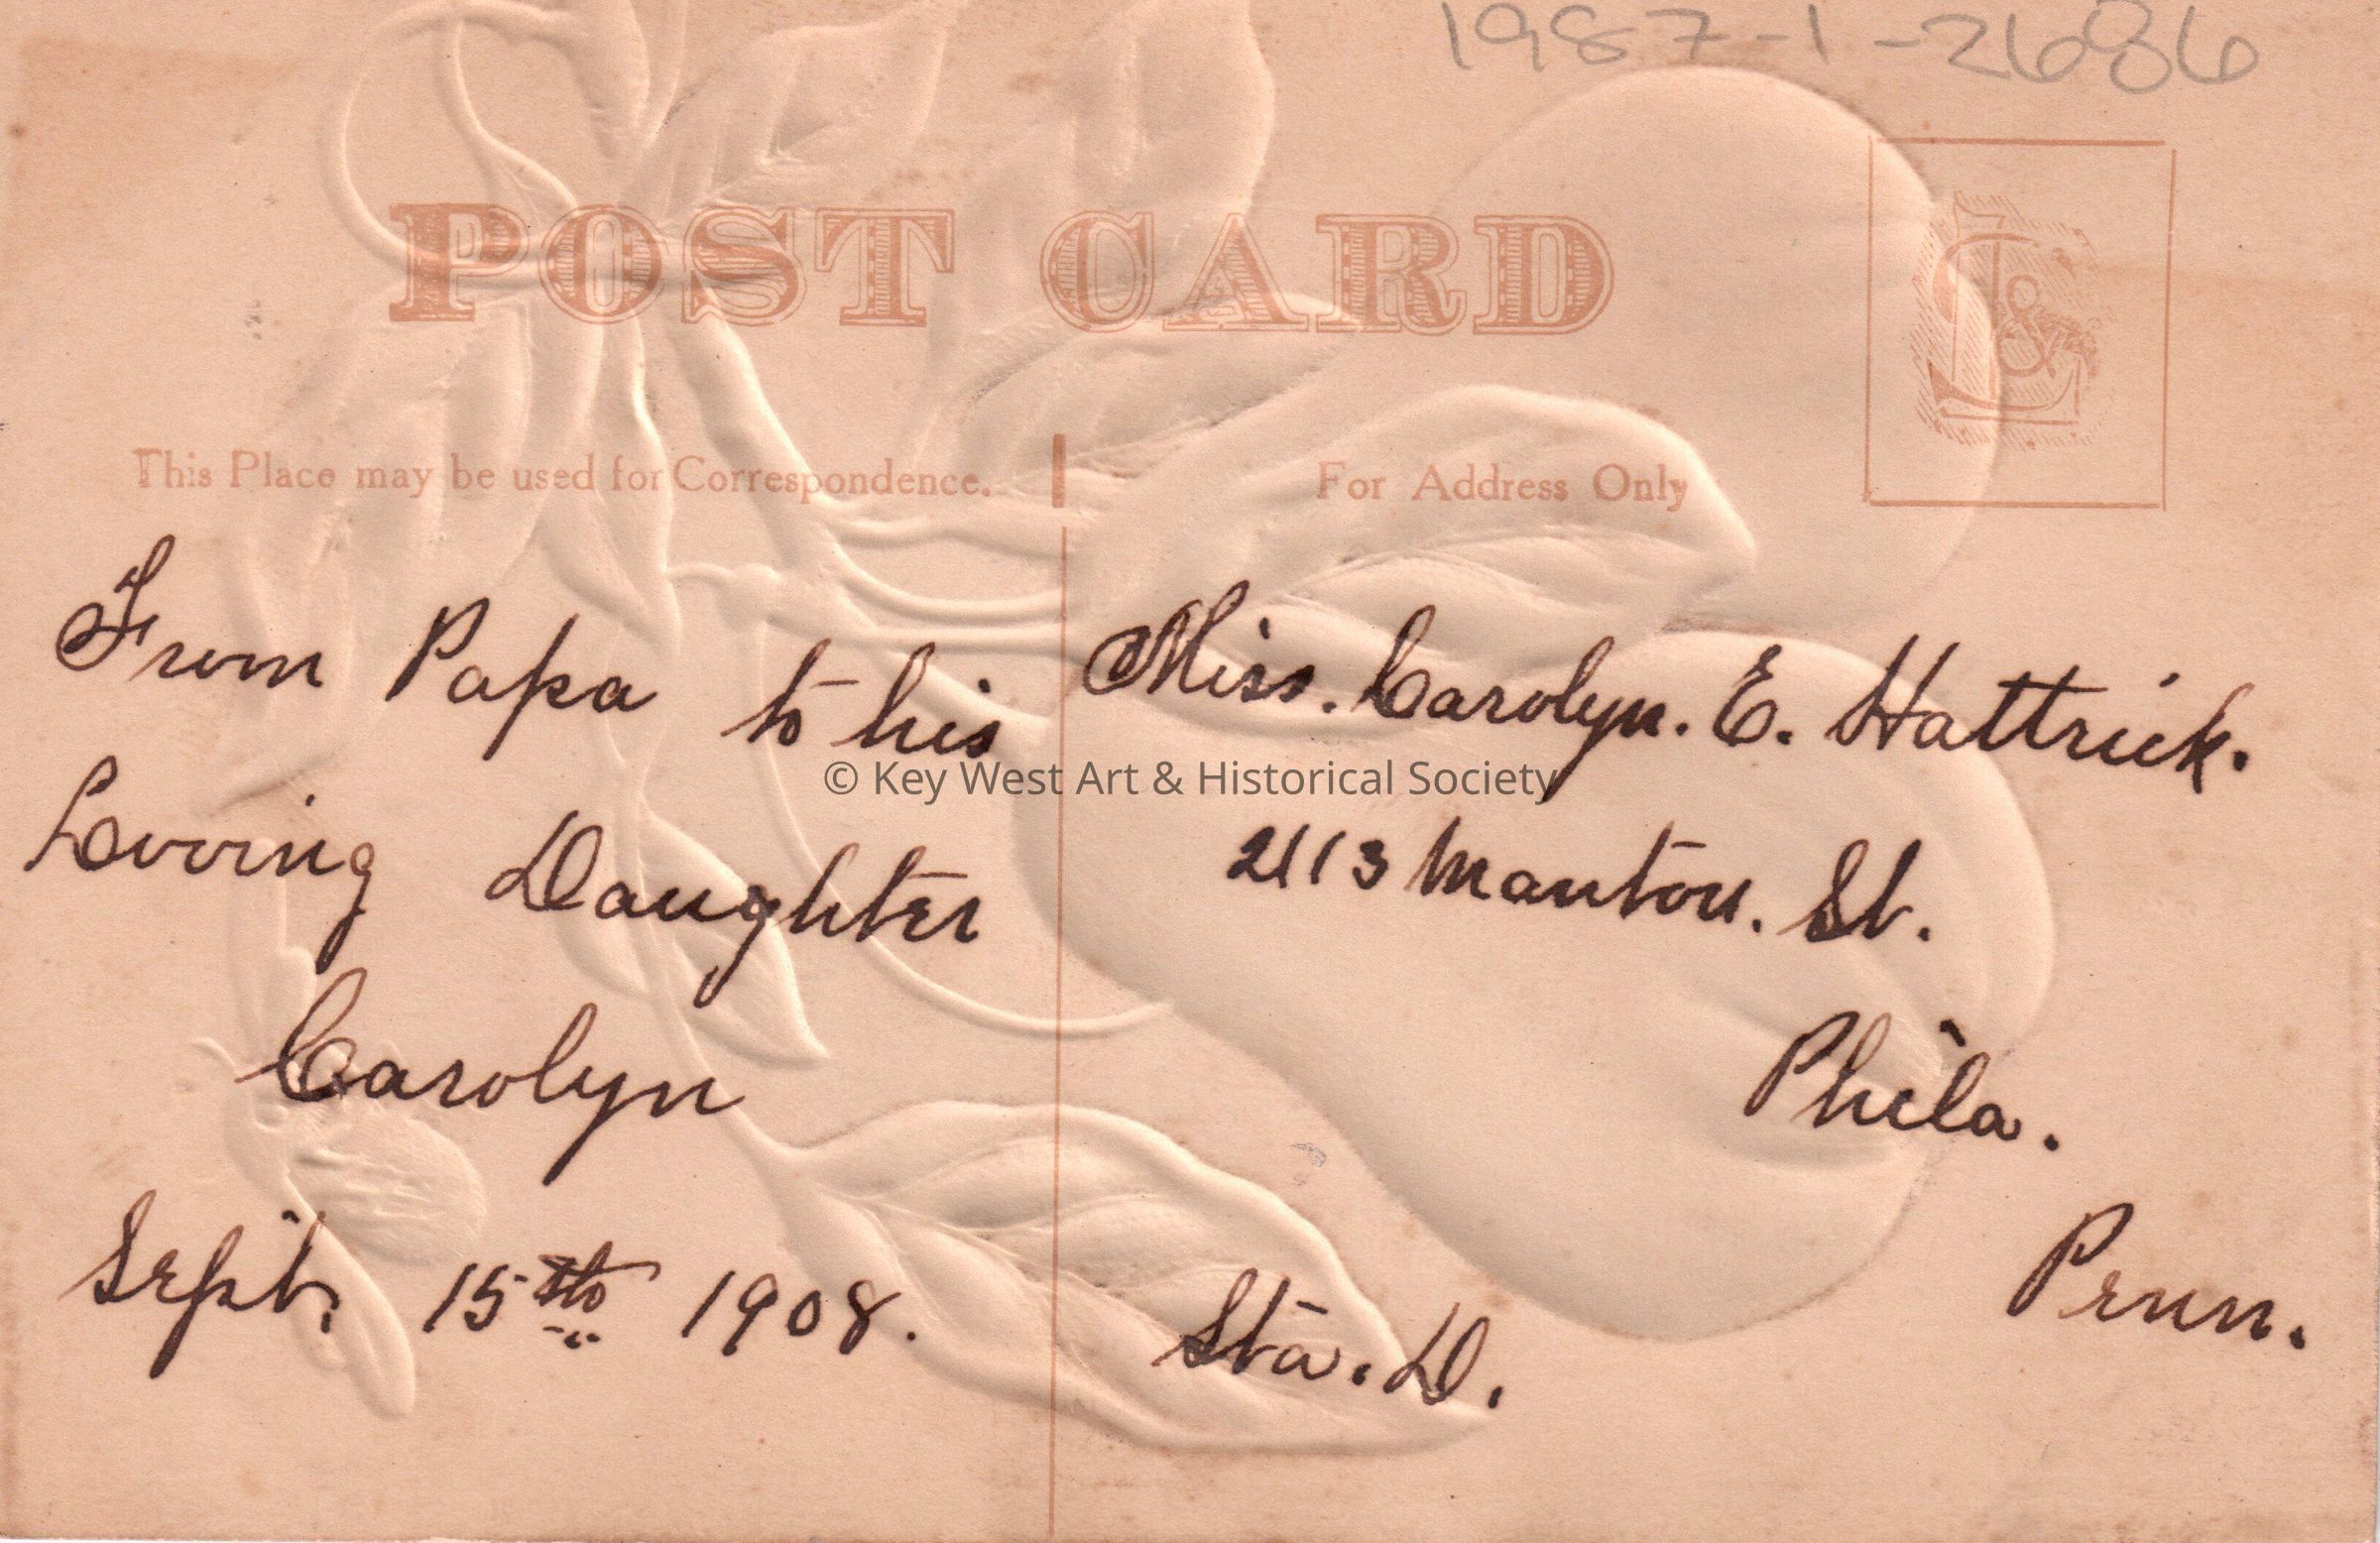 1987-1-2686
POST CARD
This Place may be used for Correspondence.
For Address Only
From Papa to his
Loving Daughter
Carolyn
Sept. 15th 1908.
Miss. Carolyn. E. Hattrick.
2113 Manton. St.
Phila.
Penn.
Sta. D.
© Key West Art & Historical Society